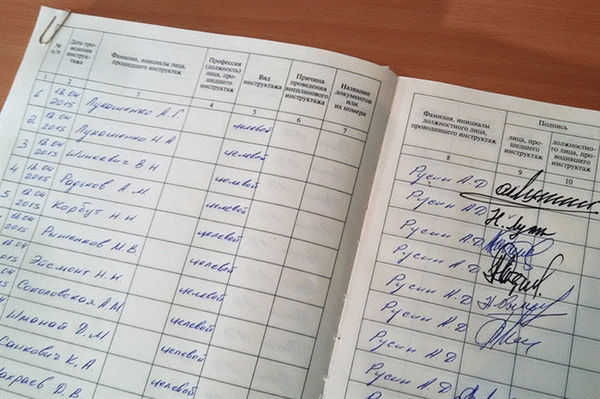 № п/п
Дата про-
ведения
инструк-
тажа
Фамилия, инициалы лица,
прошедшего инструктаж
Профессия
(должность)
лица, про-
шедшего
инструктаж
Вид
инструктажа
Причина
проведения
внепланового
инструктажа
Название
документов
или
их номера
1 2 3 4 5 6 7
1 12.04 2015 Лукашенко А. Г. целевой
2 12.04 2015 Лукашенко Н А целевой
3 12.04 2015 Шинкевич В. Н. целевой
4 12.04 2015 Радьков А. М. целевой
5 12.04 2015 Корбут Н. Н целевой
12.04 2015 Рыженков М.В. целевой
Эйсмонт Н. Н. целевой
Соколовская А М целевой
Иманай Д. М. целевой
Саикович К. А целевой
Захраев Д. В
Фамилия, инициалы
должностного лица,
проводившего инструктаж
Подпись
лица, про-
шедшего
инструктаж
должностно-
го лица, про-
водившего
инструктаж
8 9 10
Русин А. Д
Русин А Д
Русин А. Д
Русин А. Д
Русин А. Д
Русин А. Д
Русин А Д
Русин А. Д
Русин